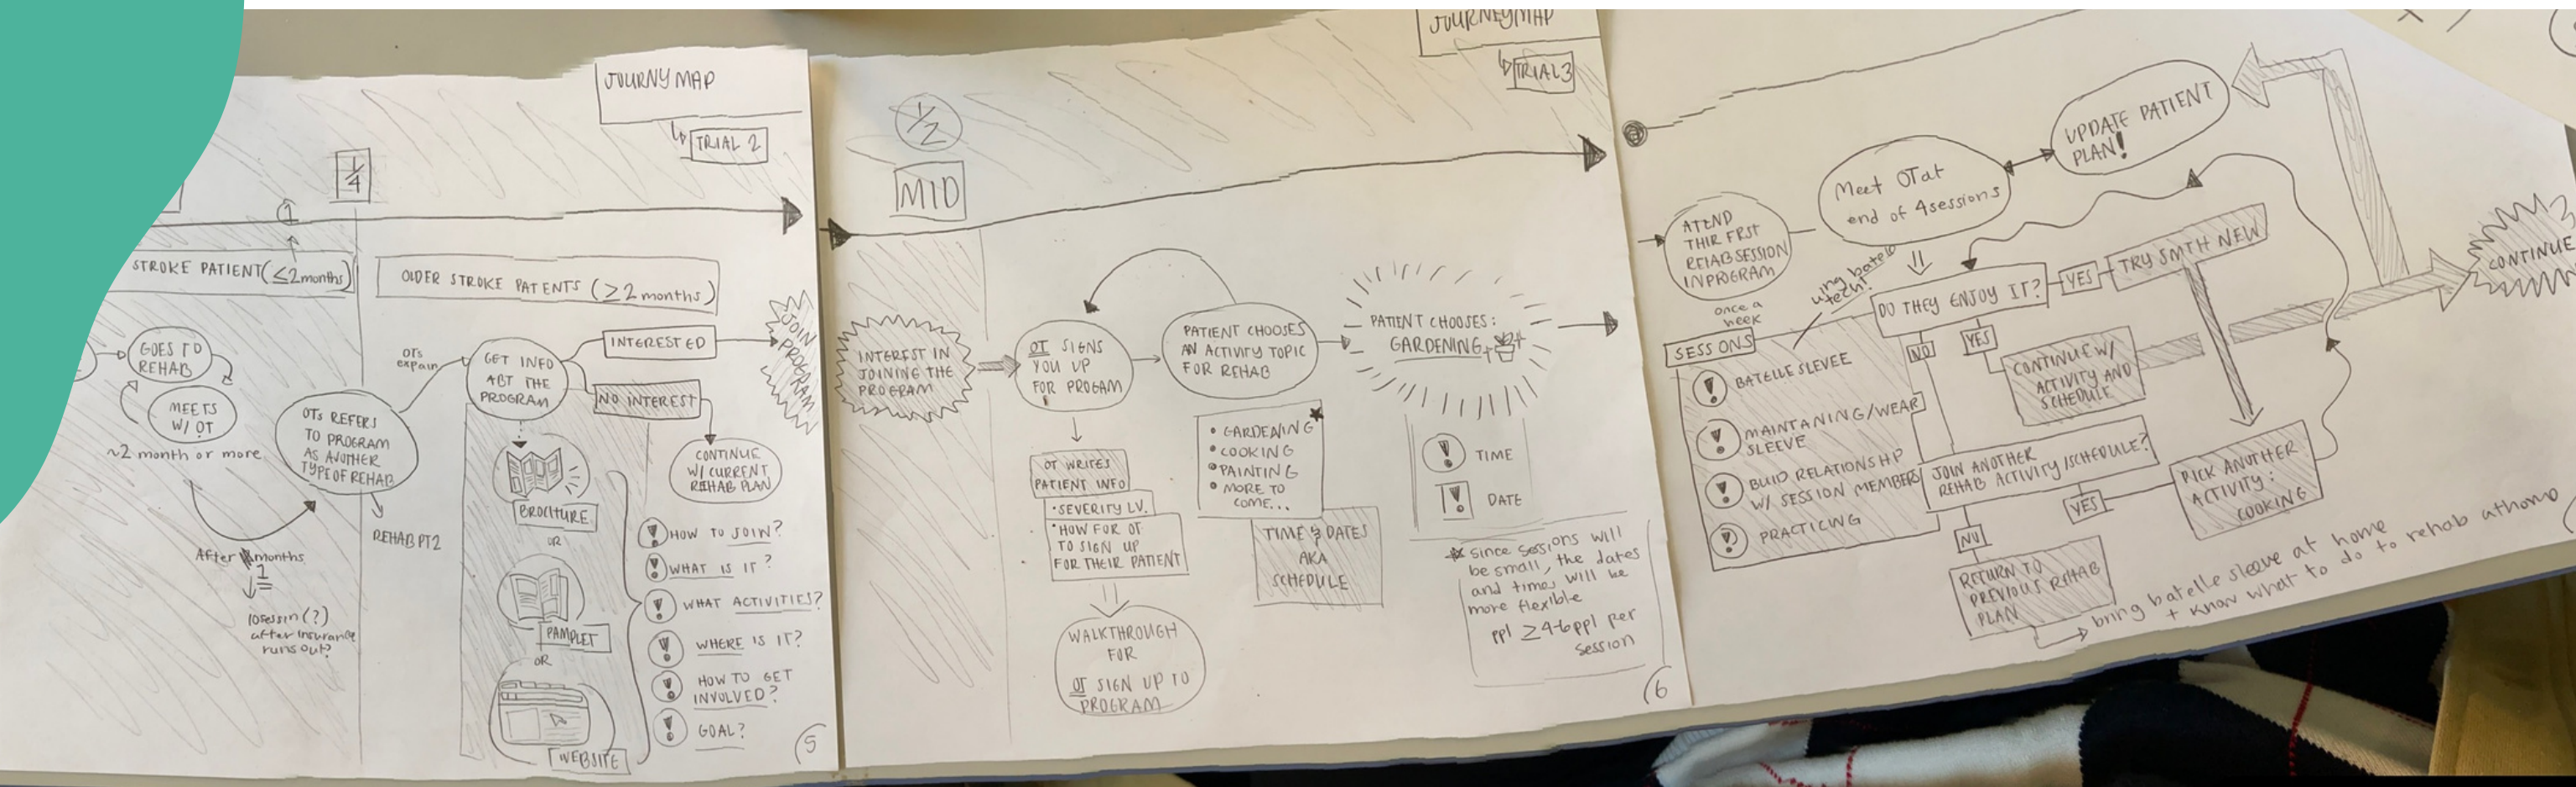 JOURNY MAP
TRIAL 2
1/4
1
STROKE PATIENT (≤2 months)
OLDER STROKE PATENTS (≥2 months)
GOES TO
REHAB
MEETS
W/ OT
~2 month or more
OTs REFERS
TO PROGRAM
AS ANOTHER
TYPE OF REHAB
REHAB PT2
After months
1
10sessin(?)
after insurance
runs out?
OTs
expain
GET INFO
ABT THE
PROGRAM
INTERESTED
NO INTEREST
JOIN
PROGRAM
CONTINUE
W/ CURRENT
REHAB PLAN
BROCHTURE
OR
PAMPLET
OR
WEBSITE
! HOW TO JOIN?
! WHAT IS IT?
! WHAT ACTIVITIES?
! WHERE IS IT?
! HOW TO GET
INVOLVED?
! GOAL?
5
JOURNEYMAP
TRIAL 3
1/2
MID
INTEREST IN
JOINING THE
PROGRAM
OT SIGNS
YOU UP
FOR PROGAM
PATIENT CHOOSES
AN ACTIVITY TOPIC
FOR REHAB
PATIENT CHOOSES:
GARDENING
OT WRITES
PATIENT INFO
• SEVERITY LV.
• HOW FOR OT
TO SIGN UP
FOR THEIR PATIENT
WALKTHROUGH
FOR
OT SIGN UP TO
PROGRAM
• GARDENING
• COOKING
• PAINTING
• MORE TO
COME...
TIME & DATES
AKA
SCHEDULE
! TIME
! DATE
since sessions will
be small, the dates
and times will be
more flexible
ppl ≥4-6ppl per
session
6
ATEND
THIR FRST
REHAB SESSION
IN PROGRAM
once a
week
Meet OT at
end of 4 sessions
UPDATE PATIENT
PLAN!
using batelle
tech!
SESSIONS
! BATELLE SLEVEE
! MAINTANING/WEAR
SLEEVE
! BUID RELATIONSHIP
W/ SESSION MEMBERS
! PRACTICING
DO THEY ENJOY IT?
YES
TRY SMTH NEW
NO
YES
CONTINUE W/
ACTIVITY AND
SCHEDULE
CONTINUE
JOIN ANOTHER
REHAB ACTIVITY/SCHEDULE?
YES
PICK ANOTHER
ACTIVITY:
COOKING
NO
RETURN TO
PREVIOUS REHAB
PLAN
bring batelle sleeve at home
+ know what to do to rehab athome